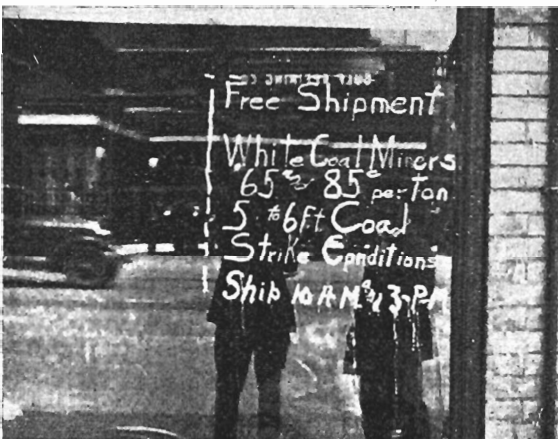 Free Shipment
White Coal Miners
65 & 85¢ per Ton
5 to 6ft Coal
Strike Conditions
Ship 10 A-M. & 3-P-M